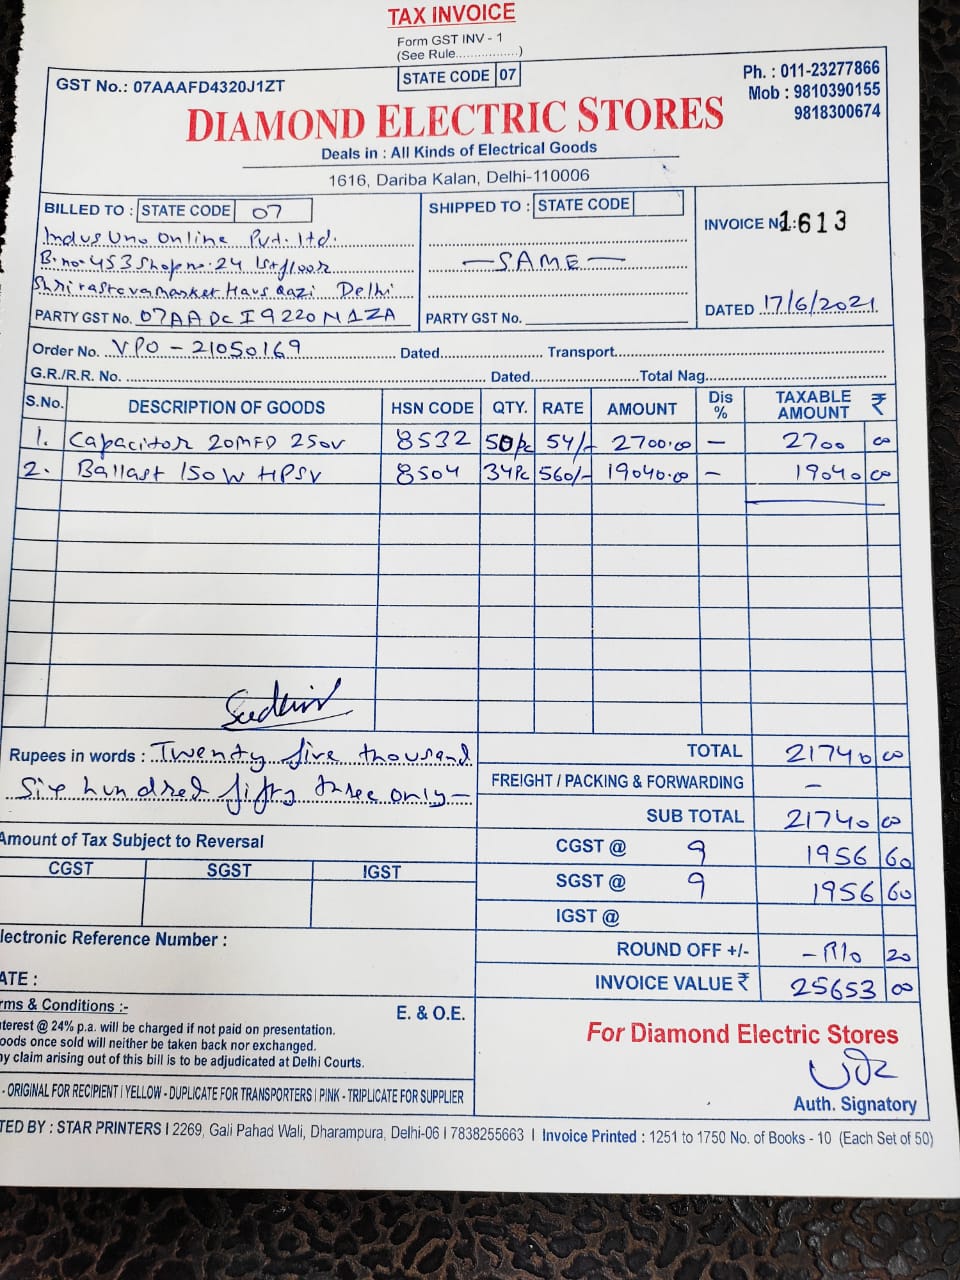 TAX INVOICE
Form GST INV - 1
(See Rule.................)
GST No.: 07AAAFD4320J1ZT
STATE CODE 07
Ph. : 011-23277866
Mob : 9810390155
9818300674
DIAMOND ELECTRIC STORES
Deals in : All Kinds of Electrical Goods
1616, Dariba Kalan, Delhi-110006
BILLED TO : STATE CODE 07
SHIPPED TO : STATE CODE
INVOICE No.: 1613
Indus Uno Online Pvt. ltd.
B.no.453 Shop no. 24 1st floor
— SAME —
Shrirastava market Haus Qazi Delhi
DATED 17/6/2021
PARTY GST No. 07AADCI9220N1ZA
PARTY GST No.
Order No. VPO - 21050169 Dated Transport
G.R./R.R. No. Dated Total Nag.
S.No. DESCRIPTION OF GOODS HSN CODE QTY. RATE AMOUNT Dis % TAXABLE AMOUNT ₹
1. Capacitor 20MFD 250V 8532 50pc 54/- 2700.00 — 2700 00
2. Ballast 150W HPSV 8504 34Pc 560/- 19040.00 — 19040 00
Rupees in words : Twenty five thousand
Six hundred fifty three only —
TOTAL 21740 00
FREIGHT / PACKING & FORWARDING —
SUB TOTAL 21740 00
Amount of Tax Subject to Reversal
CGST @ 9 1956 60
CGST SGST IGST
SGST @ 9 1956 60
IGST @
lectronic Reference Number :
ROUND OFF +/- - R/o 20
ATE :
INVOICE VALUE ₹ 25653 00
rms & Conditions :-
E. & O.E.
terest @ 24% p.a. will be charged if not paid on presentation.
oods once sold will neither be taken back nor exchanged.
ny claim arising out of this bill is to be adjudicated at Delhi Courts.
For Diamond Electric Stores
Auth. Signatory
- ORIGINAL FOR RECIPIENT | YELLOW - DUPLICATE FOR TRANSPORTERS | PINK - TRIPLICATE FOR SUPPLIER
TED BY : STAR PRINTERS | 2269, Gali Pahad Wali, Dharampura, Delhi-06 | 7838255663 | Invoice Printed : 1251 to 1750 No. of Books - 10 (Each Set of 50)